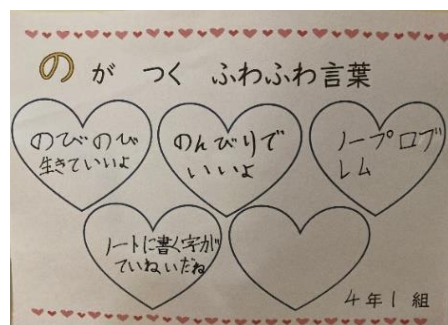 の が つく ふわふわ言葉
のびのび
生きていいよ
のんびりで
いいよ
ノープロブ
レム
ノートに書く字が
ていねいだね
4年1組